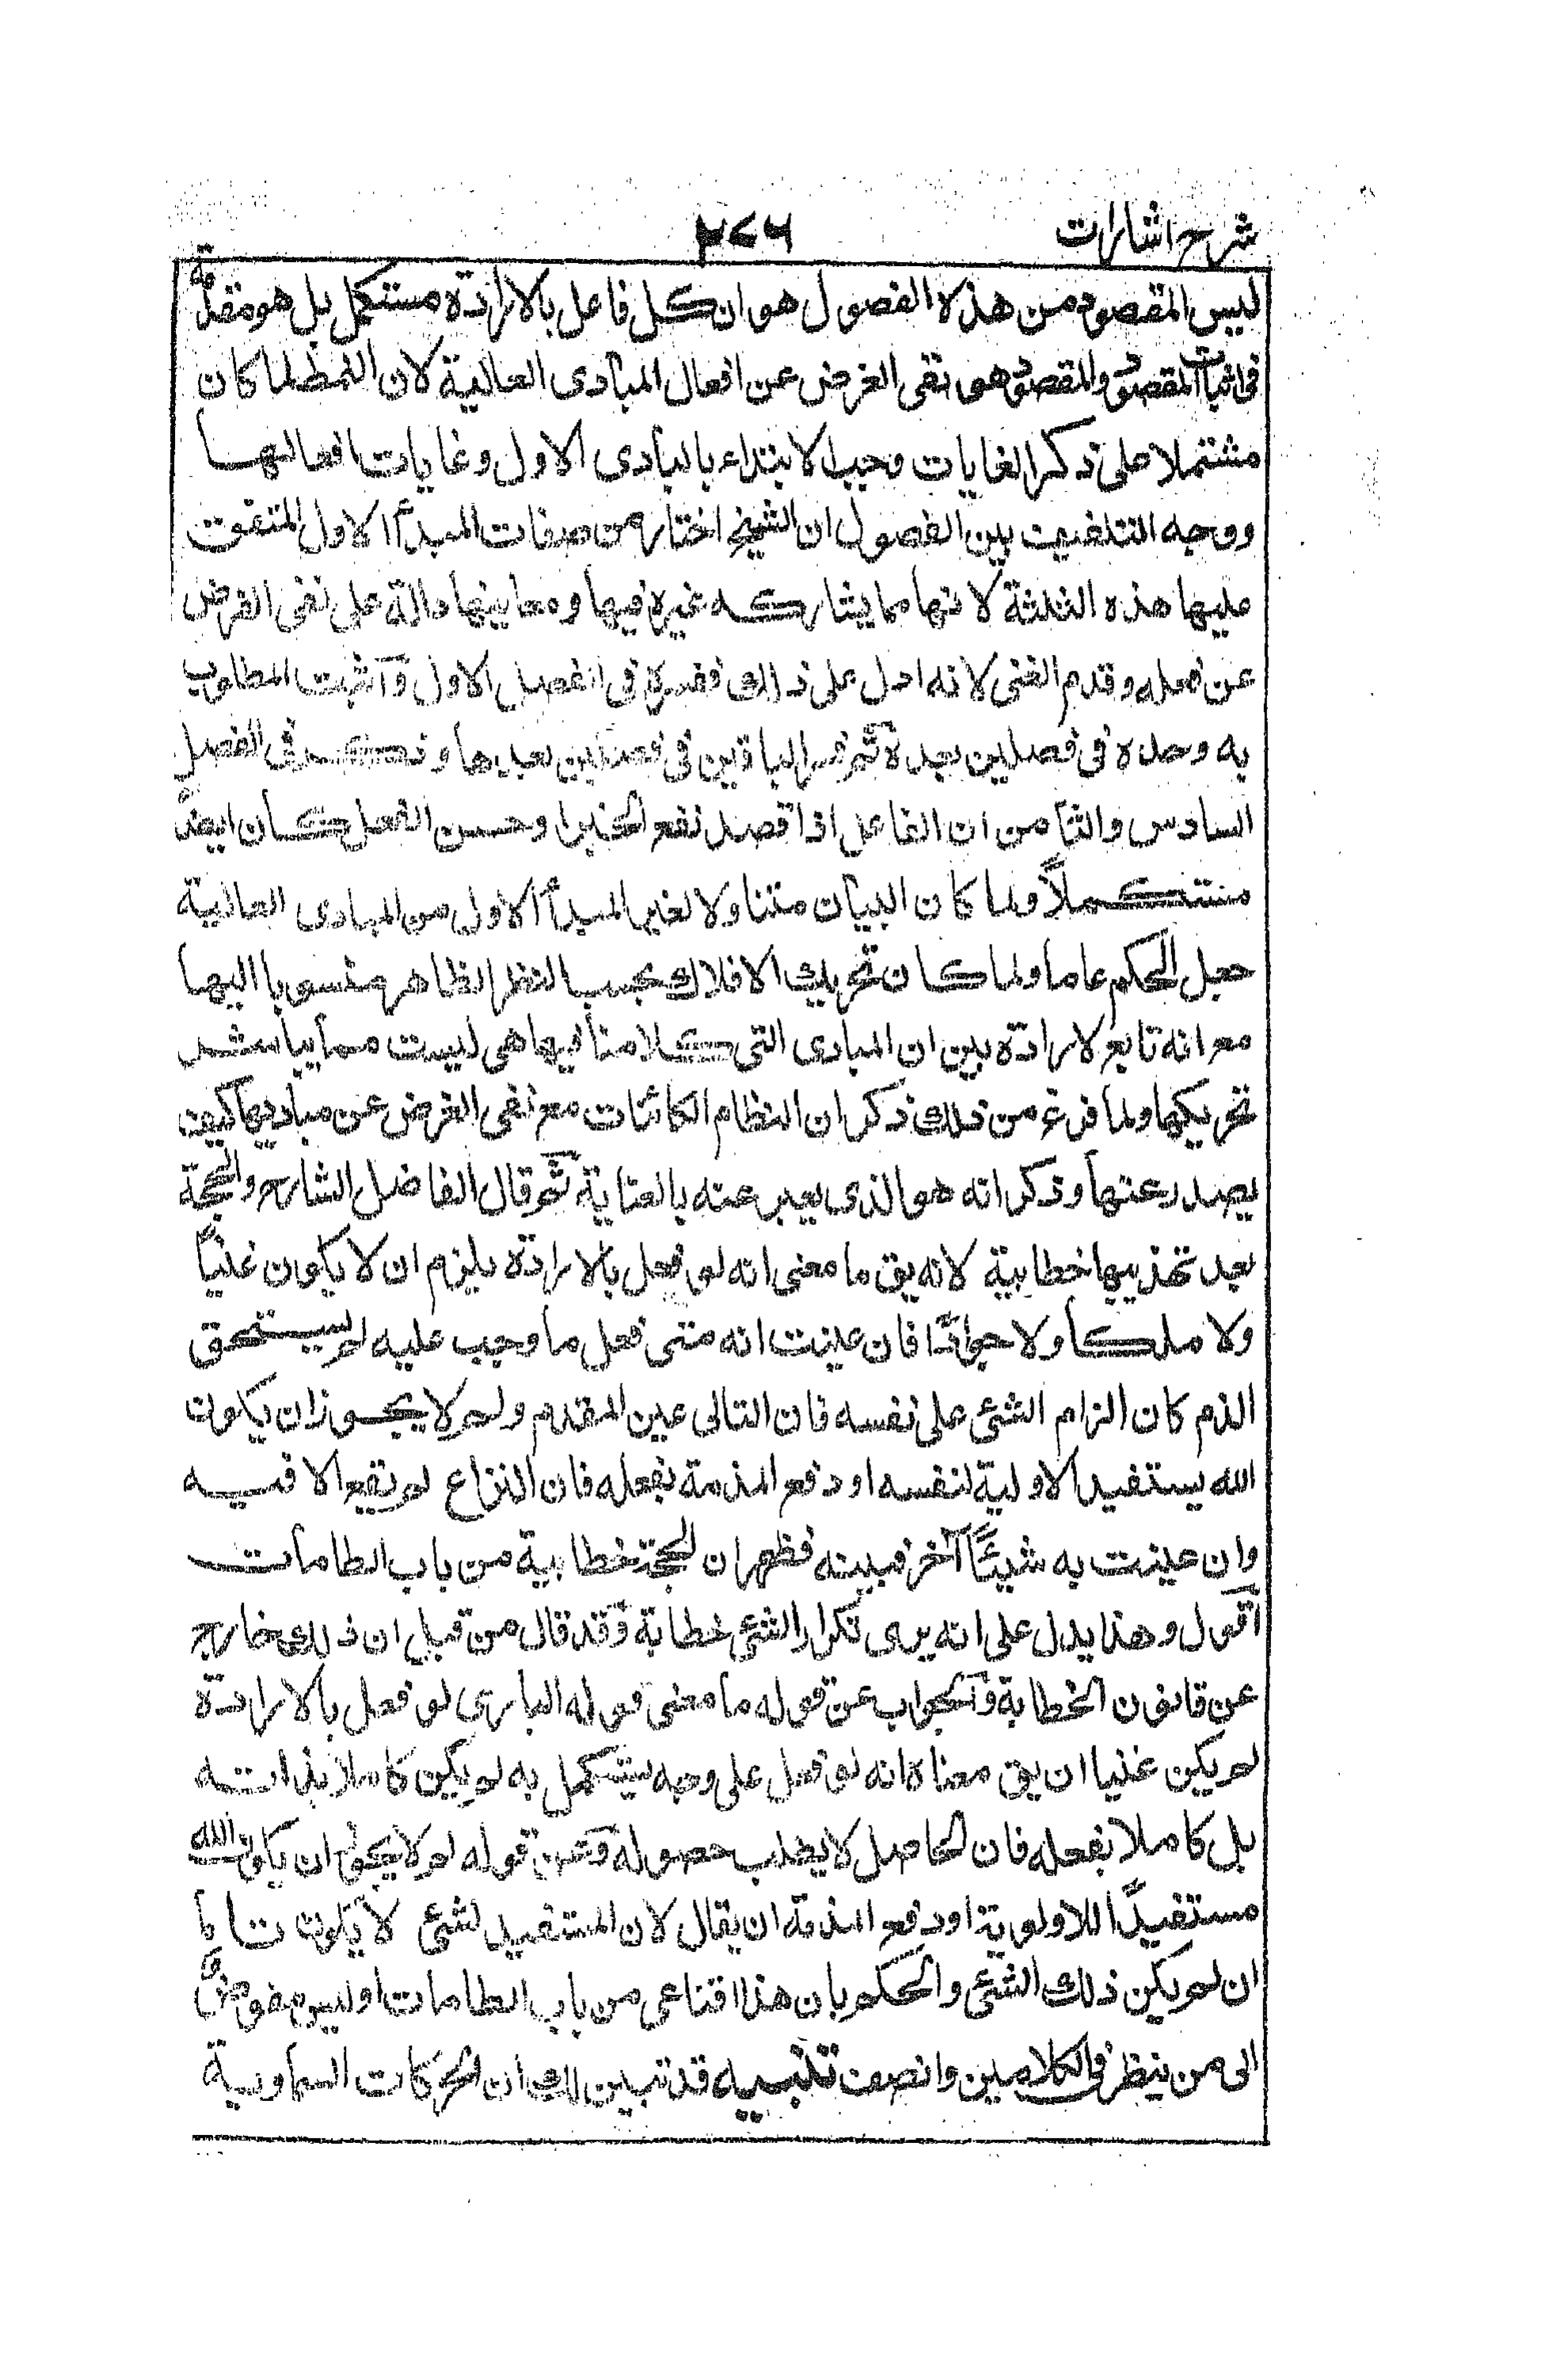 شرح اشارات ٢٧٦
ليس المقصود من هذه الفصول هو ان كل فاعل بالارادة مستكمل بل هو مقدمة
فى اثبات المقصود والمقصود هو نفى الغرض عن افعال المبادى العالية لان النمط لما كان
مشتملا على ذكر الغايات وجب الابتداء بالمبادى الاول وغايات افعالها
ووجه التلفيق بين الفصول ان الشيخ اختار من صفات المبدأ الاول المتفق
عليها هذه الثلثة لانها مما يشاركه غيره فيها ومعانيها دالة على نفى الغرض
عن فعله وقدم الغنى لانه ادل على ذلك ففسره فى الفصل الاول واثبت المطلوب
به وحده فى فصلين بعده ثم فسر الباقيين فى فصلين بعدها وذكر فى الفصل
السادس والثامن ان الفاعل اذا قصد نفع الخير او حسن الفعل كان ايضا
مستكملاً ولما كان البيان متناولا لغير المبدأ الاول من المبادى العالية
جعل الحكم عاما ولما كان تحريك الافلاك بحسب النظر الظاهر منسوبا اليها
مع انه تابع لارادة بين ان المبادى التى كلامنا فيها هى ليست مما يباشر
تحريكها ولما فرغ من ذلك ذكر ان النظام الكائنات مع نفى الغرض عن مباديها كيف
يصدر عنها وذكر انه هو الذى يعبر عنه بالعناية ثم قال الفاضل الشارح والحجة
بعد تهذيبها خطابية لانه يق ما معنى انه لو فعل بالارادة يلزم ان لا يكون غنيّاً
ولا ملكا ولا جوادًا فان عنيت انه متى فعل ما وجب عليه لم يستحق
الذم كان الزام الشئ على نفسه فان التالى عين المقدم ولم لا يجوز ان يكون
الله يستفيد الاولية لنفسه او دفع المذمة بفعله فان النزاع لم يقع الا فيه
وان عنيت به شيئًا آخر فبينه فظهر ان الحجة خطابية من باب الطامات
اقول وهذا يدل على انه يرى تكرار الشئ خطابة وقد قال من قبل ان ذلك خارج
عن قانون الخطابة والجواب عن قوله ما معنى قوله البارى لو فعل بالارادة
لم يكن غنيا ان يق معناه انه لو فعل على وجه يستكمل به لم يكن كاملا بذاته
بل كاملا بفعله فان الحاصل لا يطلب حصوله وعن قوله لم لا يجوز ان يكون الله
مستفيدًا للاولوية او دفع المذمة ان يقال لان المستفيد لشئ لا يكون تاما
ان لم يكن ذلك الشئ والحكم بان هذا اقناعى من باب الطامات او ليس مفوضٌ
الى من ينظر فى الكلامين وانصف تنبيه قد تبين لك ان الحركات السماوية